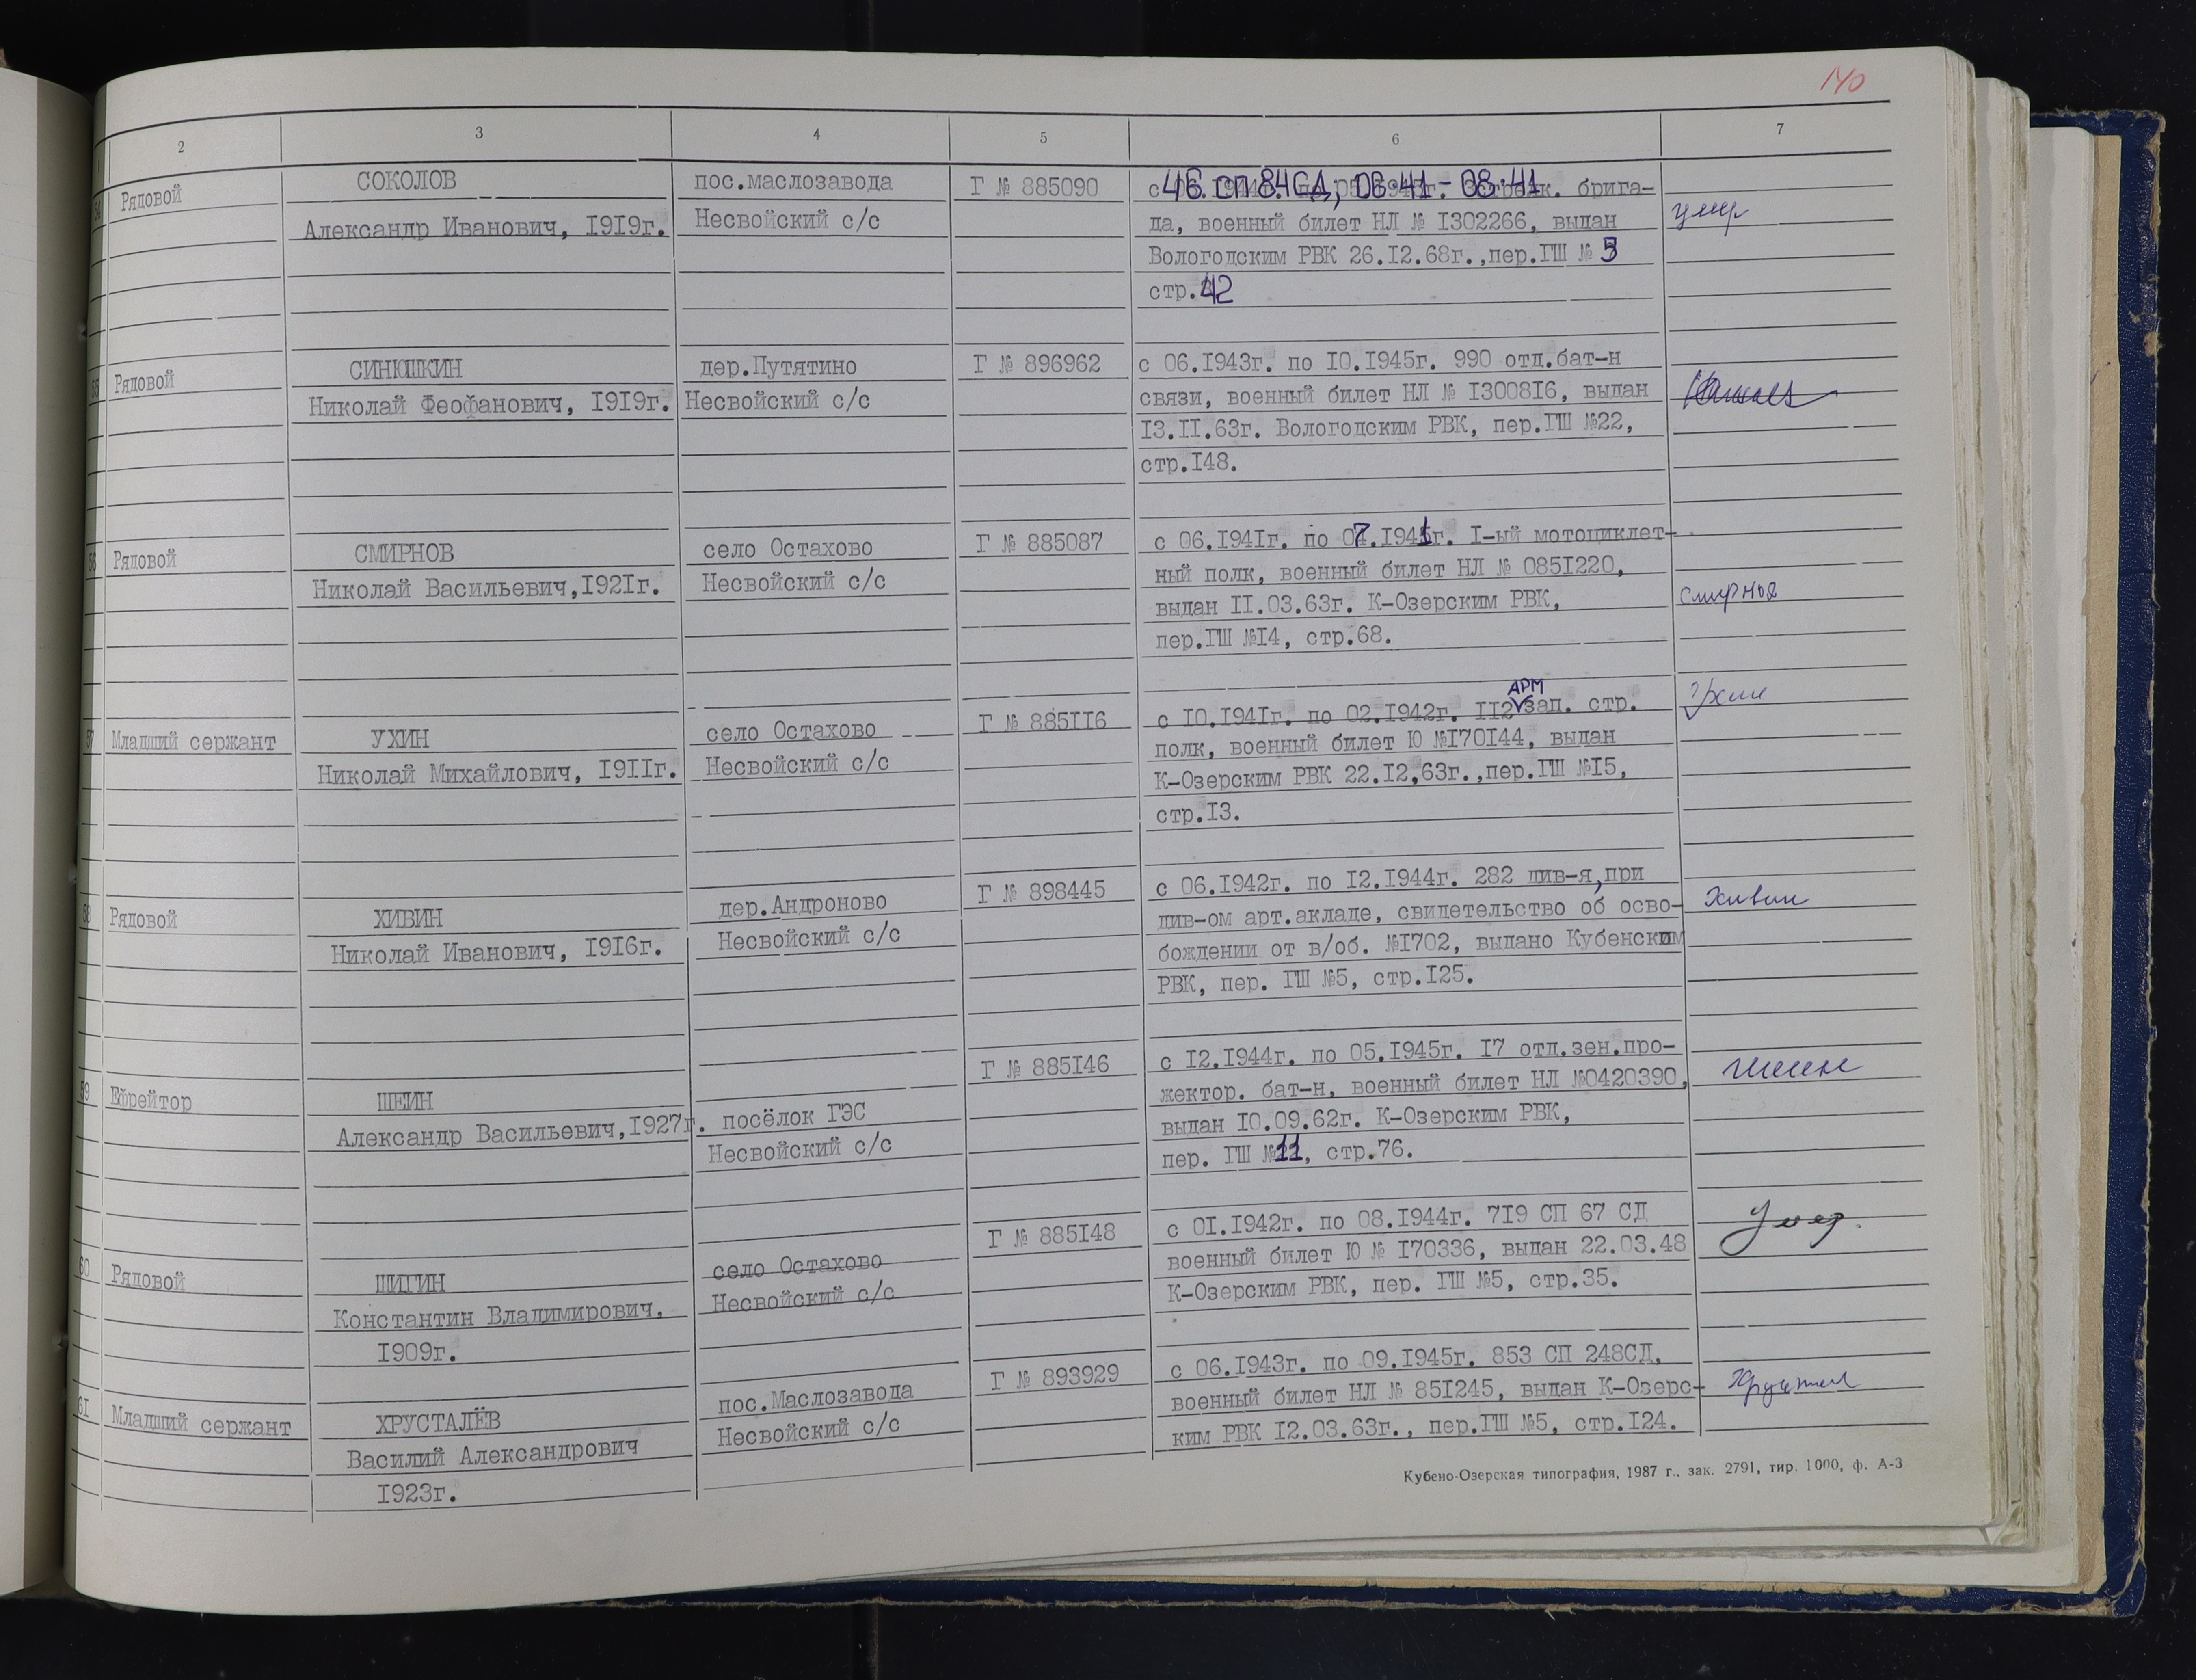 140
2 3 4 5 6 7
54 Рядовой СОКОЛОВ пос.маслозавода Г № 885090 46 СП 84 СД, 06·41 - 08·41 брига-
Александр Иванович, 1919г. Несвойский с/с да, военный билет НЛ № 1302266, выдан умер
Вологодским РВК 26.12.68г.,пер.ГШ № 3
стр.42
55 Рядовой СИНЮШКИН дер.Путятино Г № 896962 с 06.1943г. по 10.1945г. 990 отд.бат-н
Николай Феофанович, 1919г. Несвойский с/с связи, военный билет НЛ № 1300816, выдан
13.11.63г. Вологодским РВК, пер.ГШ №22,
стр.148.
56 Рядовой СМИРНОВ село Остахово Г № 885087 с 06.1941г. по 07.1941г. I-ый мотоциклет-
Николай Васильевич,1921г. Несвойский с/с ный полк, военный билет НЛ № 0851220,
выдан 11.03.63г. К-Озерским РВК, Смирнов
пер.ГШ №14, стр.68.
57 Младший сержант УХИН село Остахово Г № 885116 с 10.1941г. по 02.1942г. 112 АРМ зап. стр. Ухин
Николай Михайлович, 1911г. Несвойский с/с полк, военный билет Ю №170144, выдан
К-Озерским РВК 22.12,63г.,пер.ГШ №15,
стр.13.
58 Рядовой ХИВИН дер.Андроново Г № 898445 с 06.1942г. по 12.1944г. 282 див-я,при Хивин
Николай Иванович, 1916г. Несвойский с/с див-ом арт.акладе, свидетельство об осво-
бождении от в/об. №1702, выдано Кубенским
РВК, пер. ГШ №5, стр.125.
59 Ефрейтор ШЕИН посёлок ГЭС Г № 885146 с 12.1944г. по 05.1945г. 17 отд.зен.про- Шеин
Александр Васильевич,1927г. Несвойский с/с жектор. бат-н, военный билет НЛ №0420390,
выдан 10.09.62г. К-Озерским РВК,
пер. ГШ №11, стр.76.
60 Рядовой ШИГИН село Остахово Г № 885148 с 01.1942г. по 08.1944г. 719 СП 67 СД Умер.
Константин Владимирович, Несвойский с/с военный билет Ю № 170336, выдан 22.03.48
1909г. К-Озерским РВК, пер. ГШ №5, стр.35.
61 Младший сержант ХРУСТАЛЁВ пос.Маслозавода Г № 893929 с 06.1943г. по 09.1945г. 853 СП 248СД.
Василий Александрович Несвойский с/с военный билет НЛ № 851245, выдан К-Озерс-
1923г. ким РВК 12.03.63г., пер.ГШ №5, стр.124.
Кубено-Озерская типография, 1987 г., зак. 2791, тир. 1000, ф. А-3